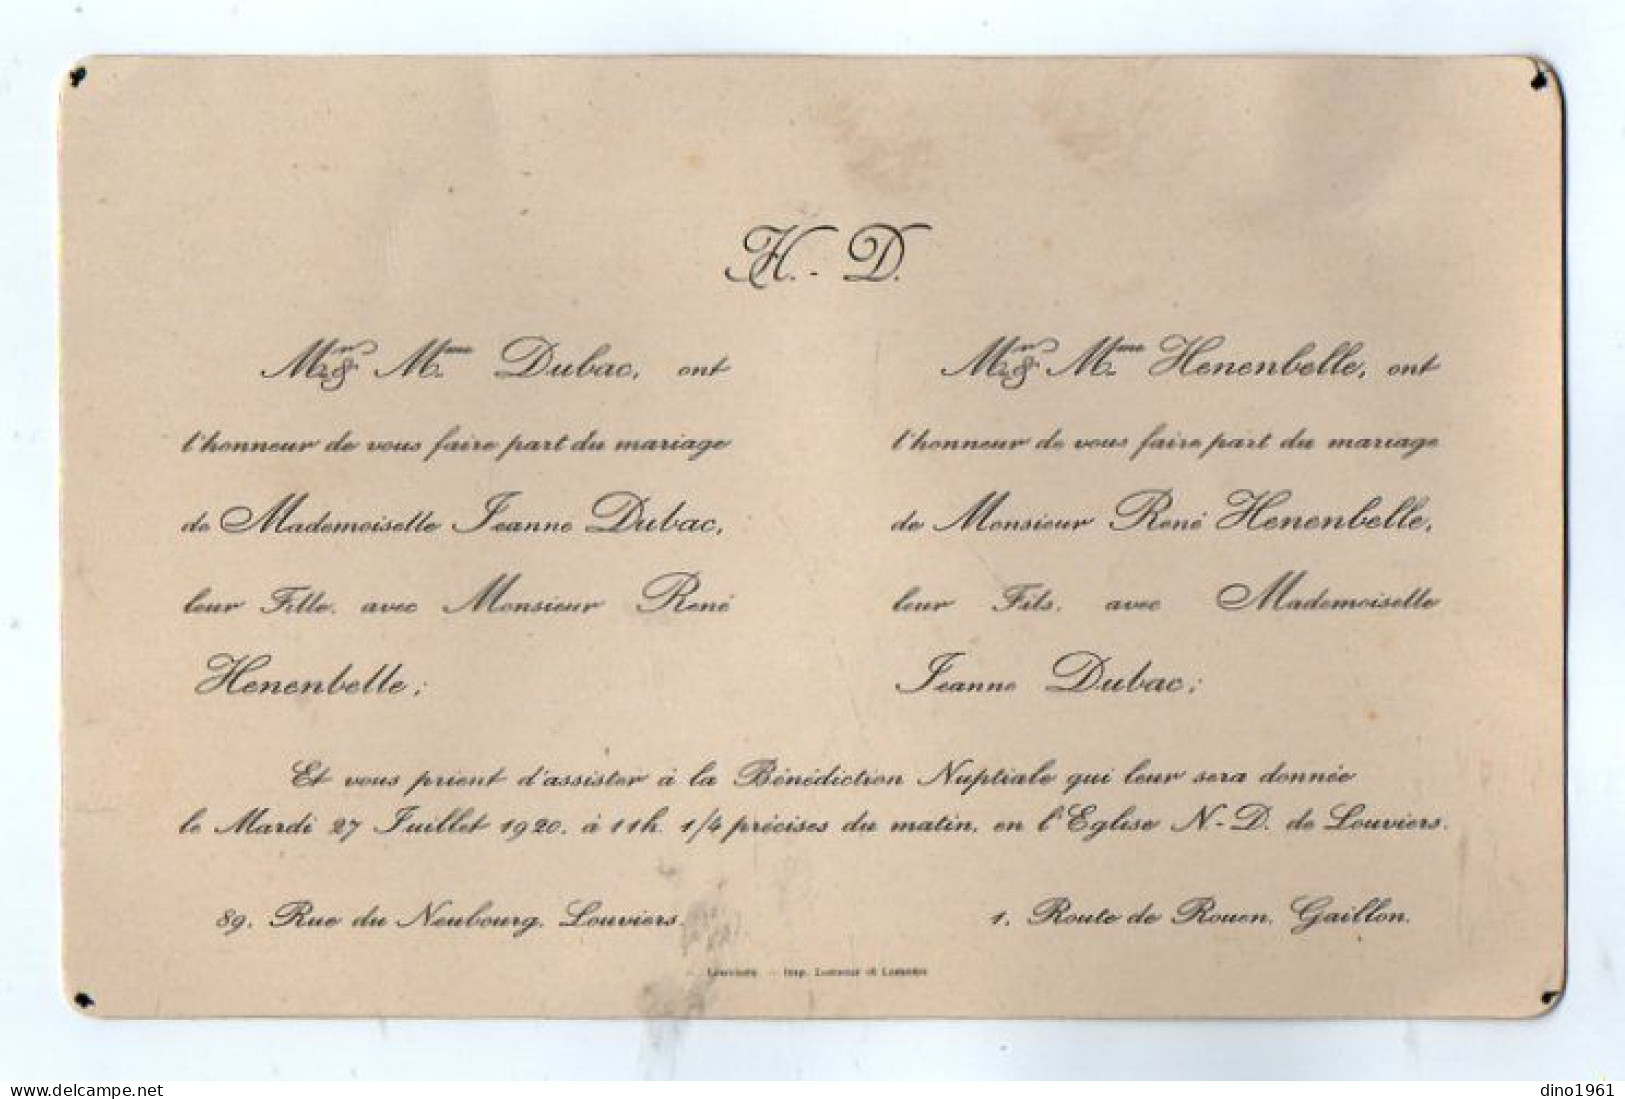 H. - D.
Mr & Mme Dubac, ont
l'honneur de vous faire part du mariage
de Mademoiselle Jeanne Dubac,
leur Fille, avec Monsieur René
Henenbelle;
Mr & Mme Henenbelle, ont
l'honneur de vous faire part du mariage
de Monsieur René Henenbelle,
leur Fils, avec Mademoiselle
Jeanne Dubac;
Et vous prient d'assister à la Bénédiction Nuptiale qui leur sera donnée
le Mardi 27 Juillet 1920, à 11h. 1/4 précises du matin, en l'Eglise N-D. de Louviers.
89, Rue du Neubourg, Louviers.
1, Route de Rouen, Gaillon.
Louviers. — Imp.
delcampe.net
dino1961